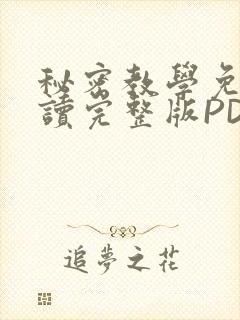 秘密教學免
讀完整版PD
追夢之花